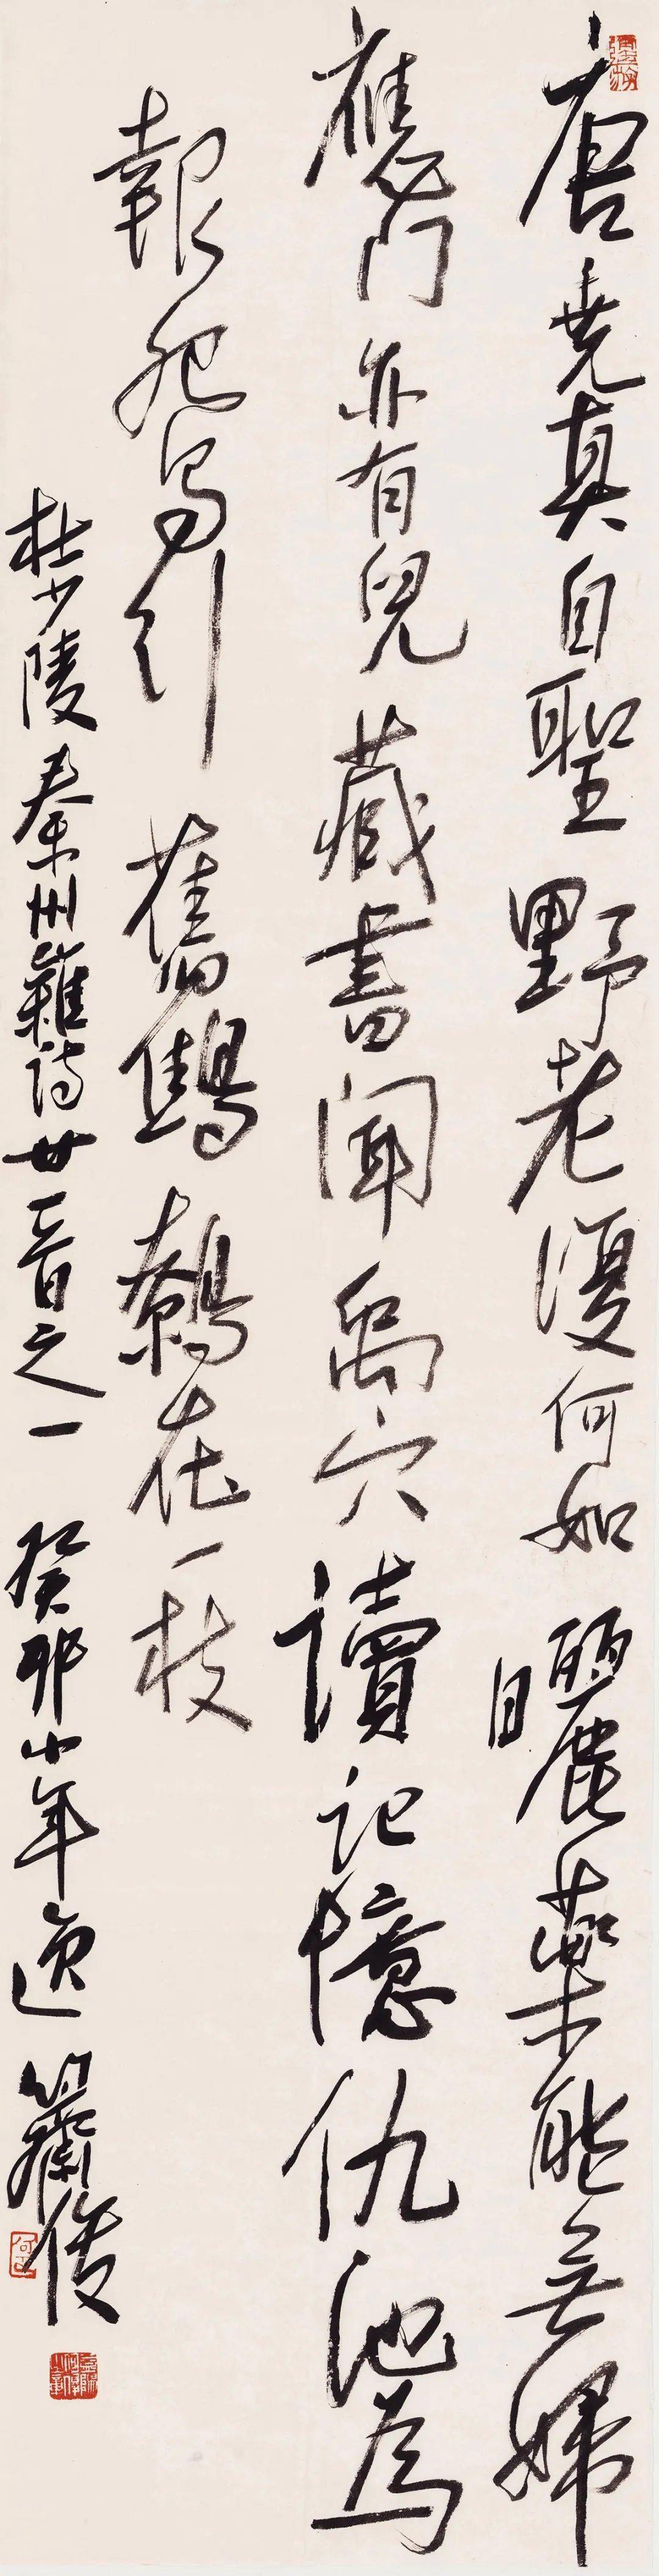 唐堯真自聖野老復何如曬藥能無婦
應門亦有兒藏書聞禹穴讀記憶仇池為
報鴛鸞引舊鷦鷯在一枝
杜少陵秦州雜詩廿首之一 癸卯小年逸簫俊